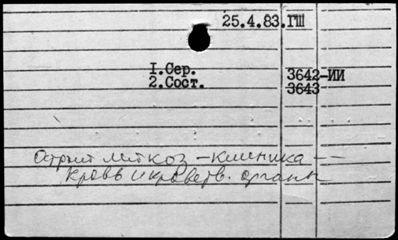 25.4.83.ГШ
I.Сер. 3642-ИИ
2.Сост. 3643
Острый лейкоз – клиника –
кровь и кроветв. органы